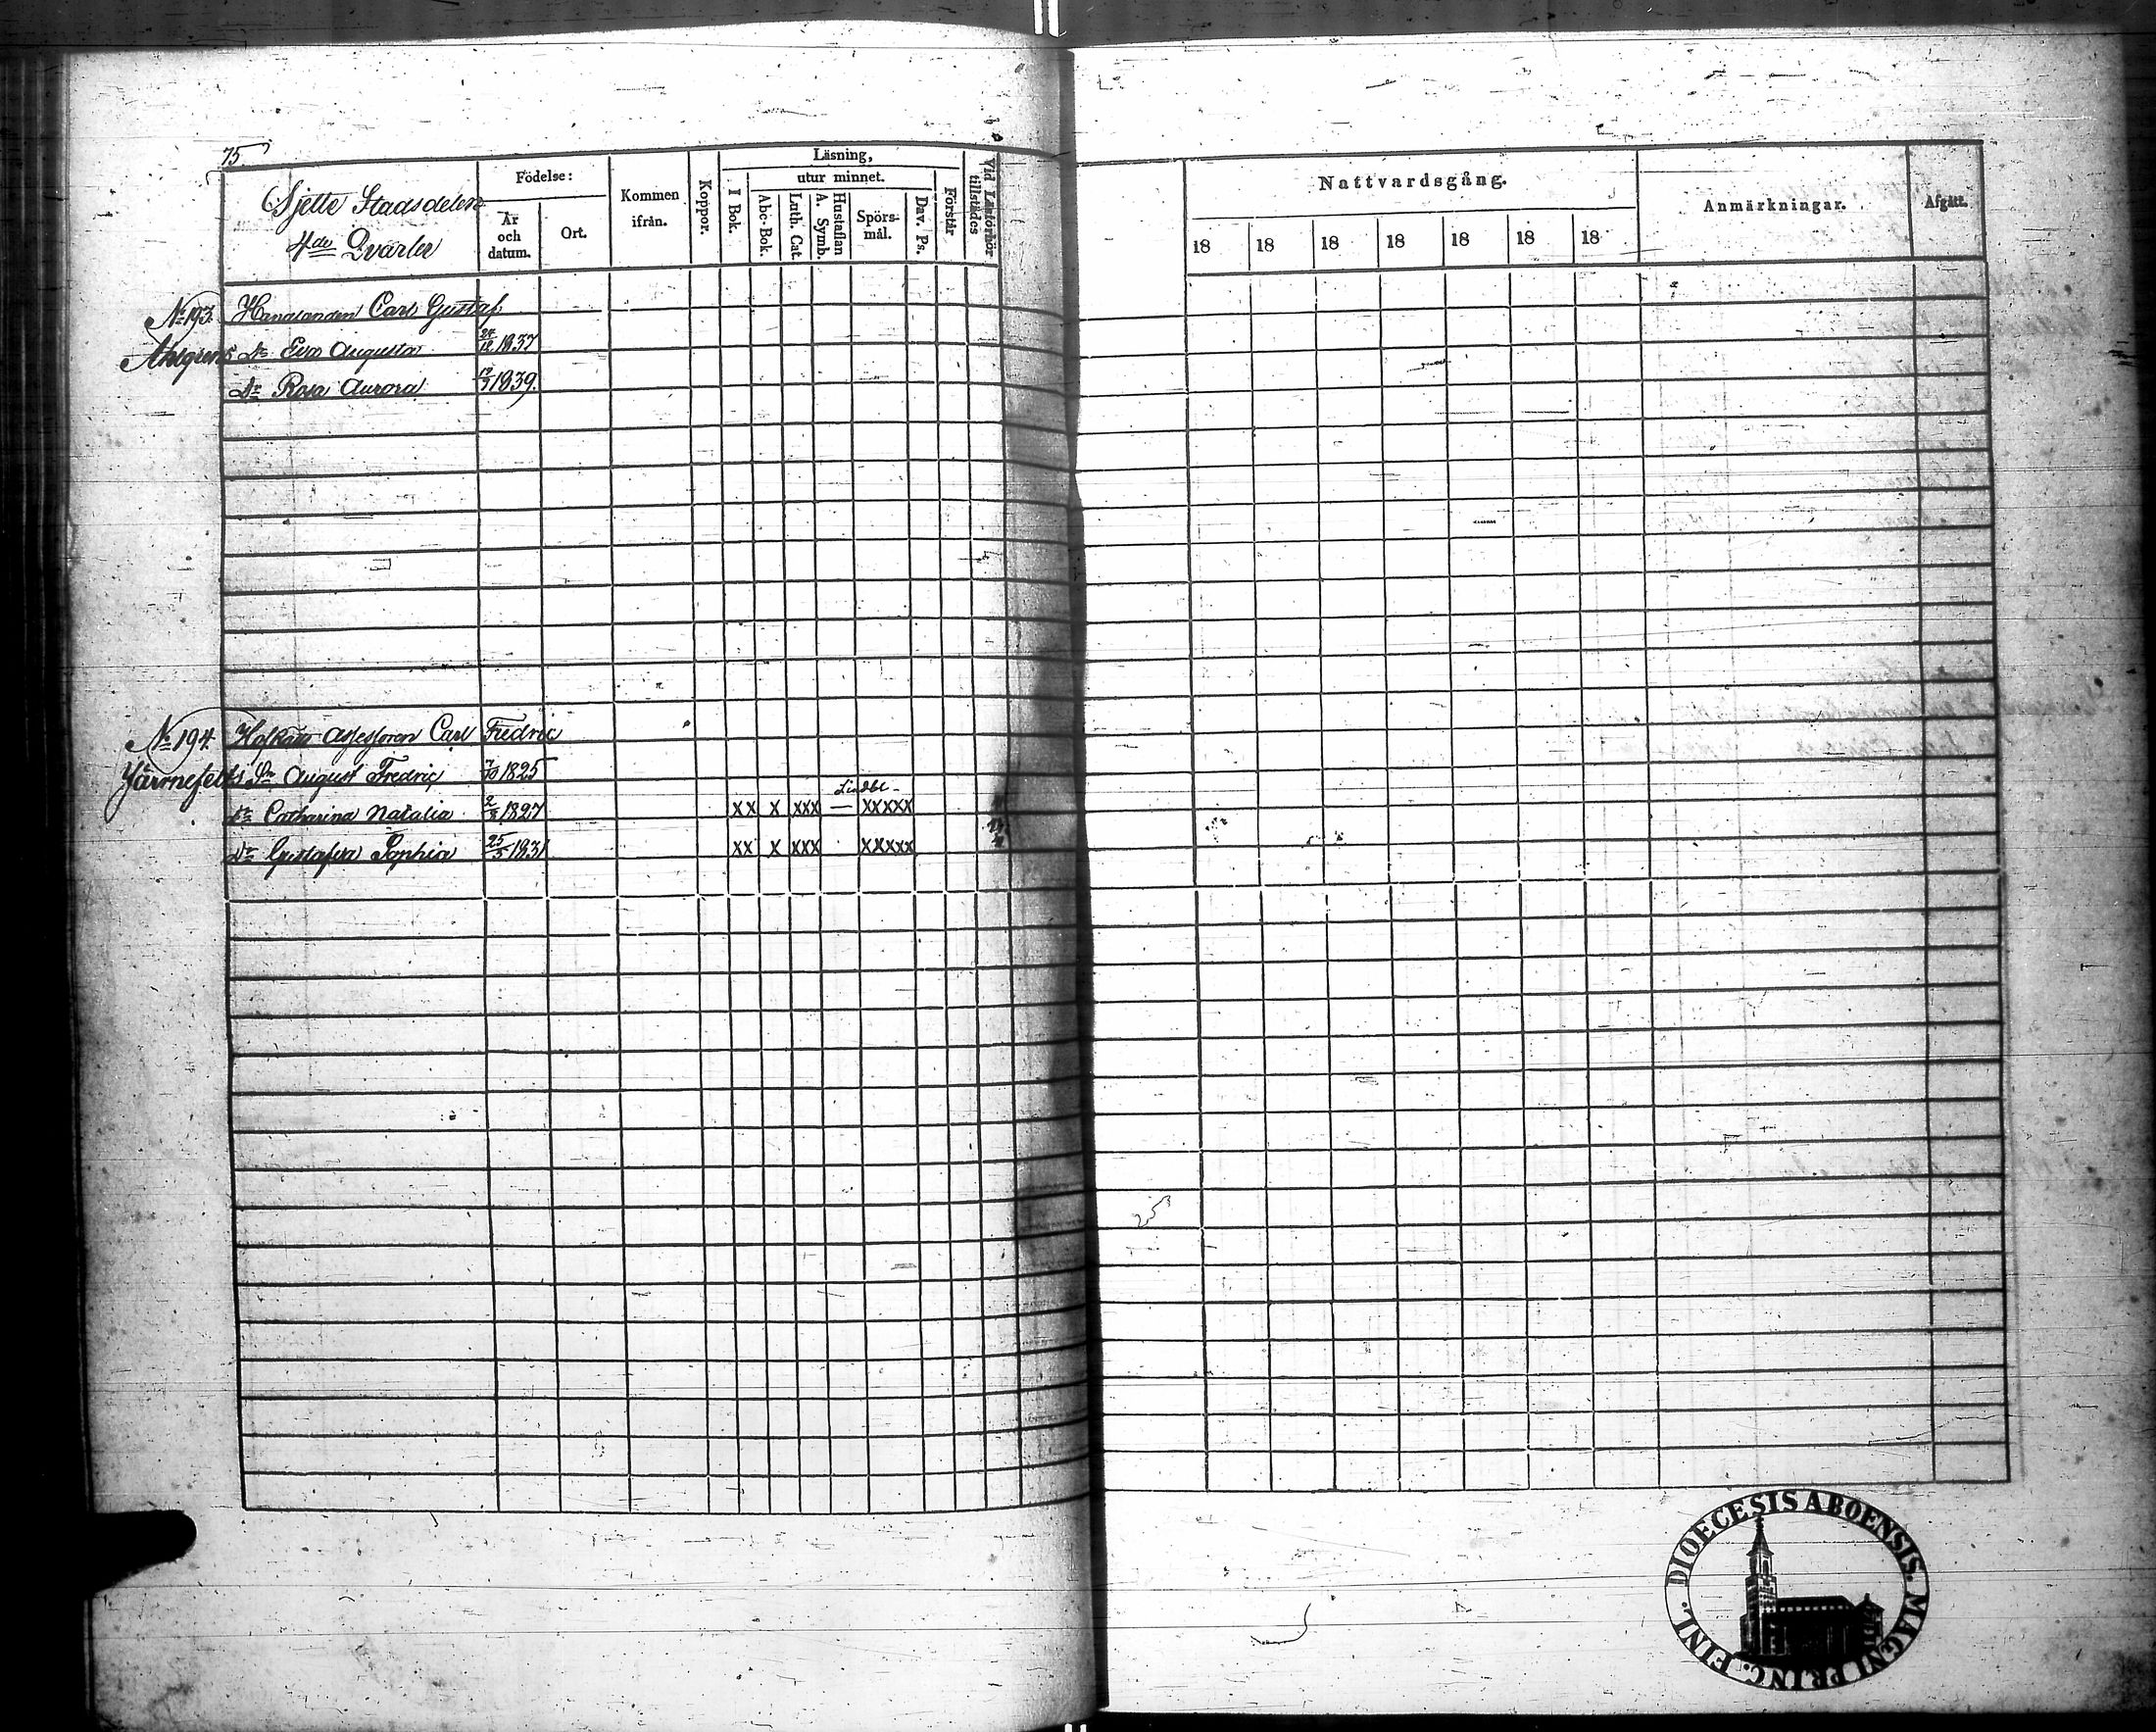 75
Sjette Stadsdelen
4de Qvarter
Födelse:
År och datum.
Ort.
Kommen ifrån.
Koppor.
Läsning,
I Bok.
utur minnet.
Abc-Bok.
Luth. Cat.
A. Symb.
Hustaflan
Spörsmål.
Dav. Ps.
Förstår
Vid Läsförhör tillstädes
Nattvardsgång.
18 18 18 18 18 18 18
Anmärkningar.
Afgått.
No 193. Handlanden Carl Gustaf
Ahlgrens Dr Eva Augusta 24/12 1837
Dr Rosa Aurora 1839.
No 194. Assessoren Carl Fredric
Järnefelts Sn August Fredric 7/10 1825
Lindbl-
Dr Catharina Natalia 1827 XX X XXX — XXXXX
Dr Gustafva Sophia 25/5 1831 XX X XXX XXXXX
DIOECESIS ABOENSIS. MAGNI PRINC. FINL.